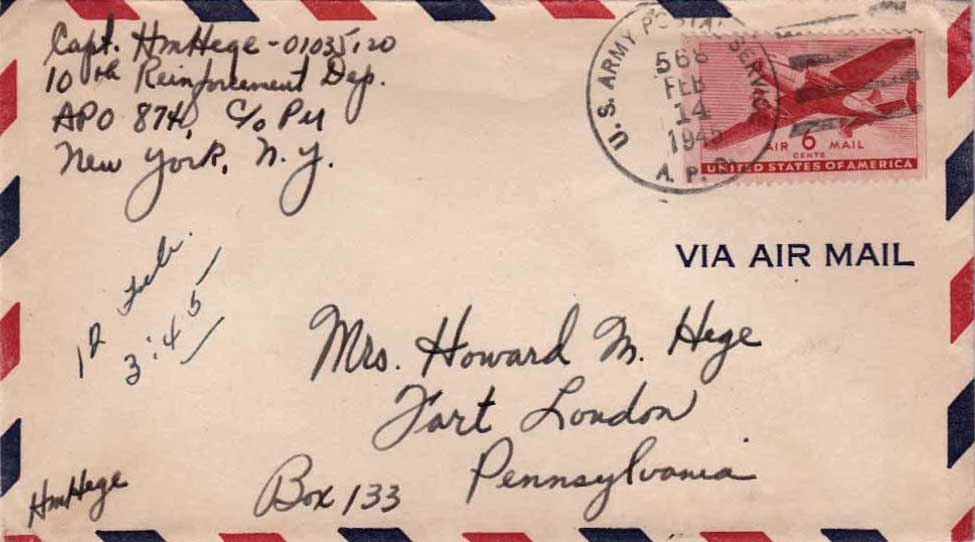 Capt. HmHege - 01035120
10th Reinforcement Dep.
APO 874, c/o PM
New York, N.Y.
U.S. ARMY POSTAL SERVICE
568
FEB
14
1945
A. P. O.
AIR 6 MAIL
CENTS
UNITED STATES OF AMERICA
VIA AIR MAIL
12 Feb.
3:45
Mrs. Howard M. Hege
Fort Loudon
Pennsylvania
Box 133
HmHege